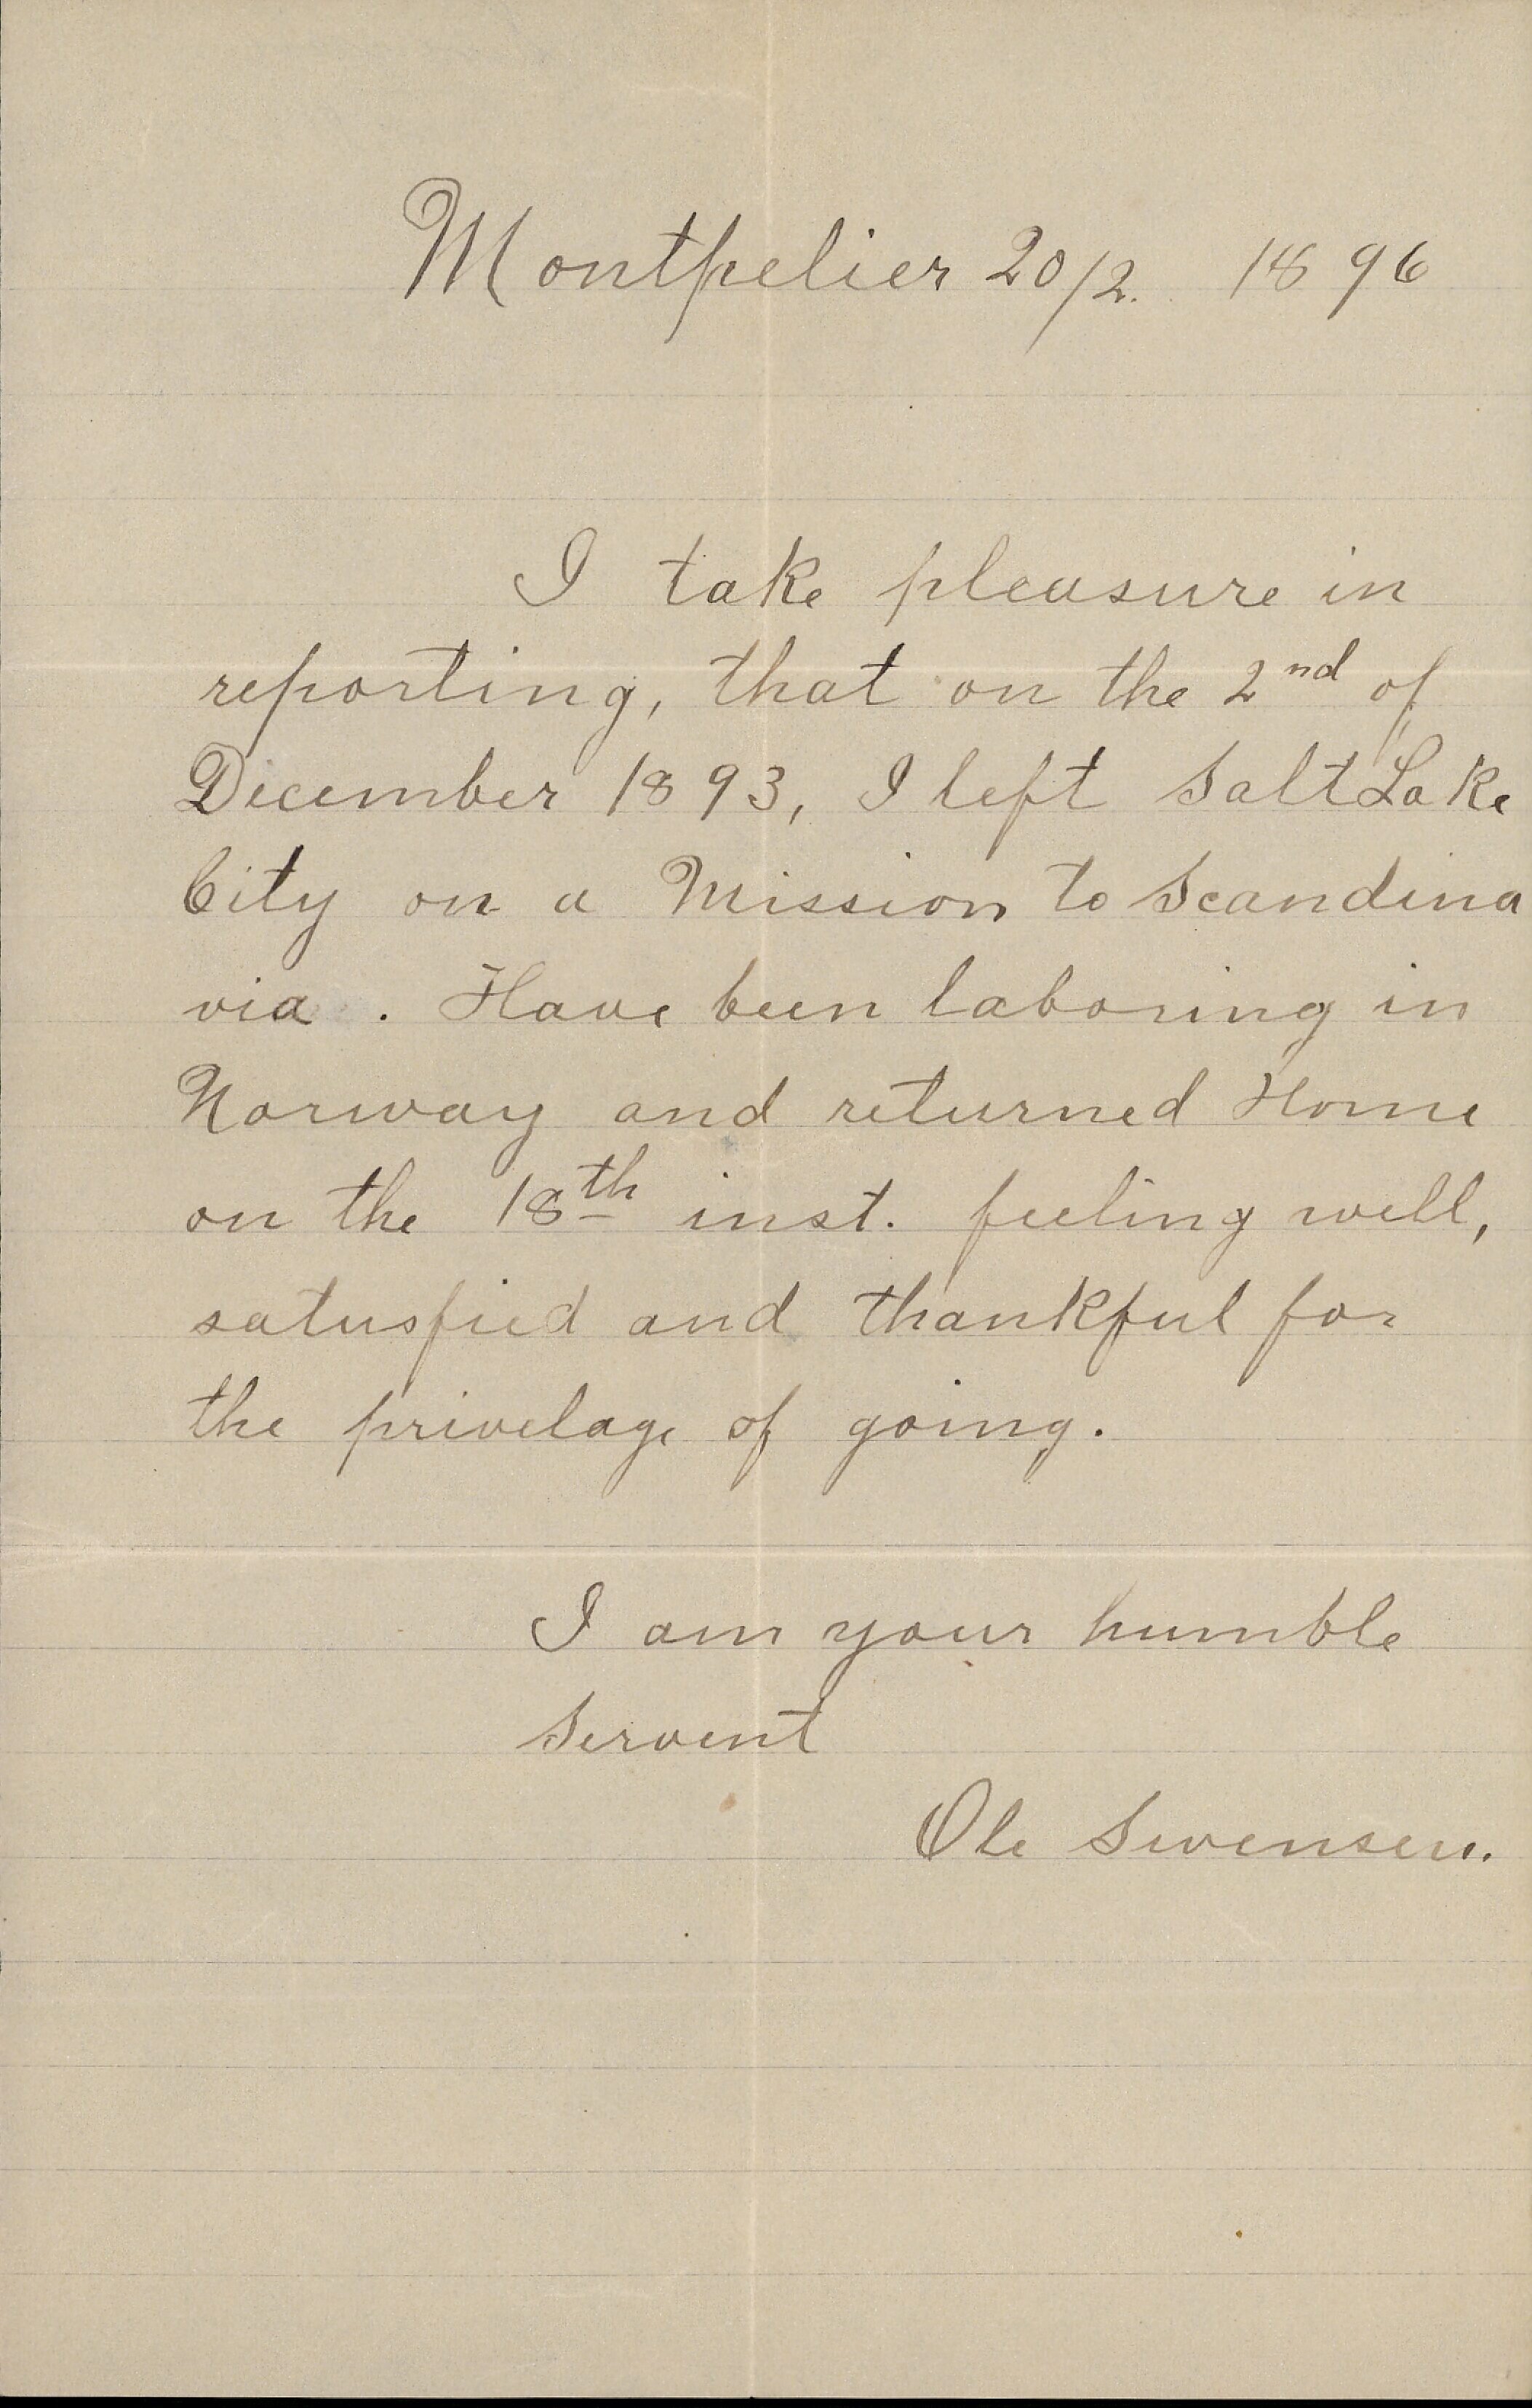 Montpelier 20/2. 1896
I take pleasure in
reporting, that on the 2nd of
December 1893, I left Salt Lake
City on a Mission to Scandina
via. Have been laboring in
Norway and returned Home
on the 18th inst. feeling well,
satusfied and thankful for
the privelage of going.
I am your humble
Servent
Ole Swensen.